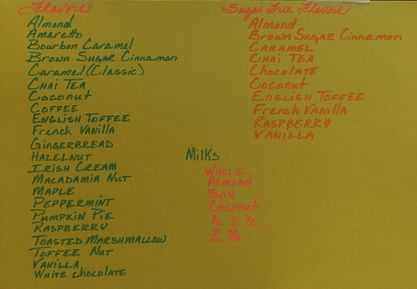 Flavors
Almond
Amaretto
Bourbon Caramel
Brown Sugar Cinnamon
Caramel (Classic)
Chai Tea
Coconut
Coffee
English Toffee
French Vanilla
Gingerbread
Hazelnut
Irish Cream
Macadamia Nut
Maple
Peppermint
Pumpkin Pie
Raspberry
Toasted Marshmallow
Toffee Nut
Vanilla
White Chocolate
Sugar Free Flavors
Almond
Brown Sugar Cinnamon
Caramel
Chai Tea
Chocolate
Coconut
English Toffee
French Vanilla
Raspberry
Vanilla
Milks
Whole
Almond
Soy
Coconut
½ & ½
2%